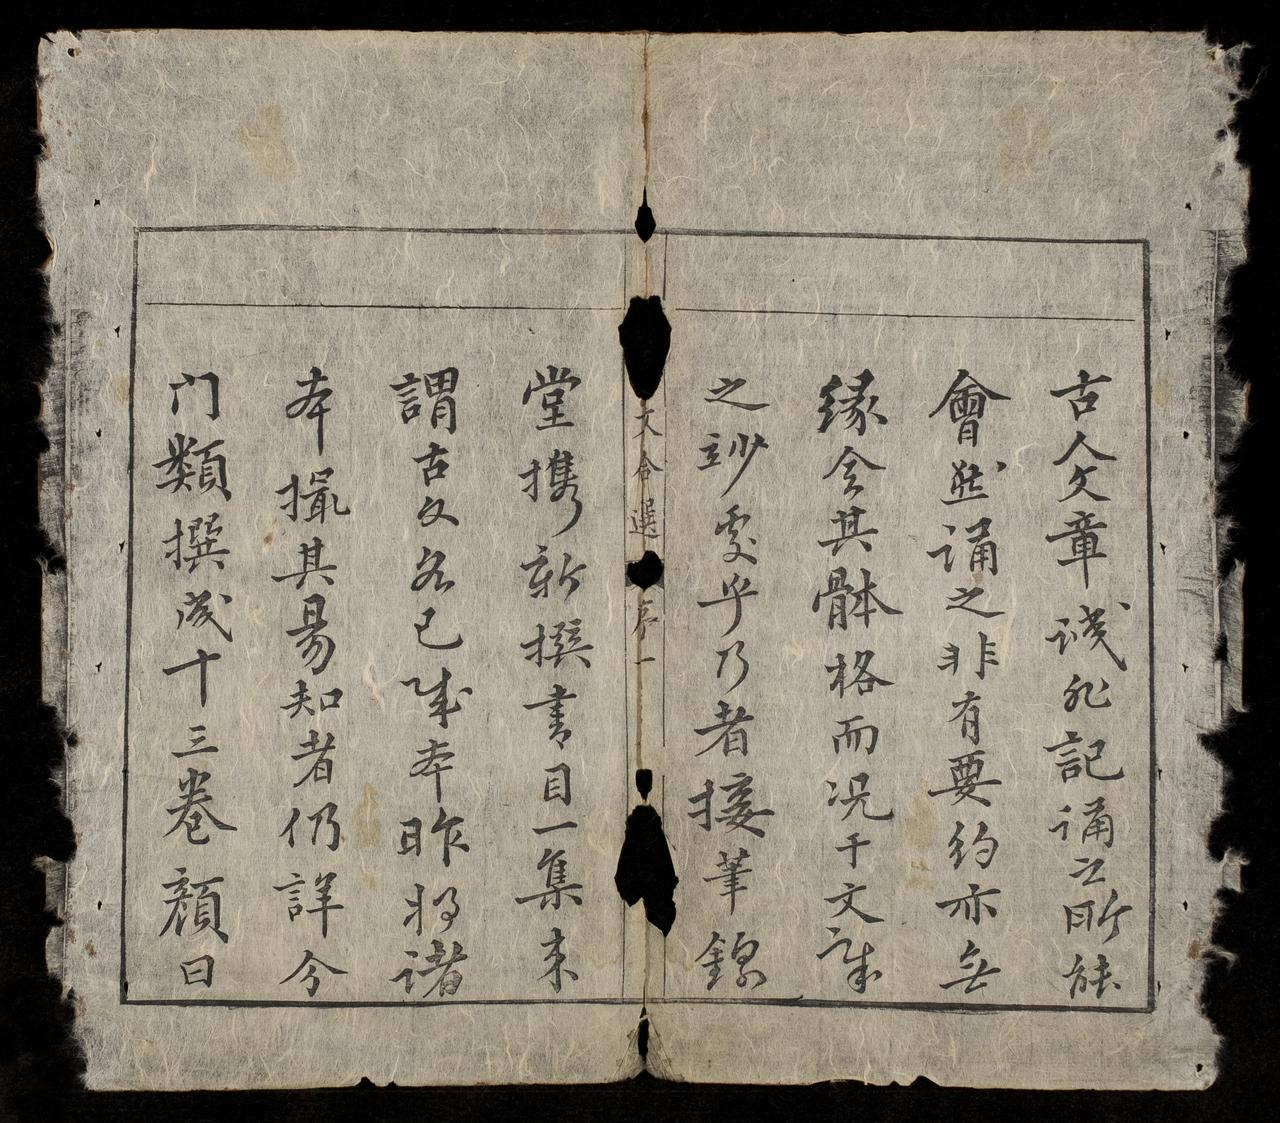 古人文章誠非記誦之所能
會然誦之非有要約亦無
緣会其體格而况于文章
之妙處乎乃者接筆錦
文会選 序一
堂携新撰書目一集来
謂古文名已成本昨將諸
本撮其易知者仍詳今
门類撰成十三卷顏曰